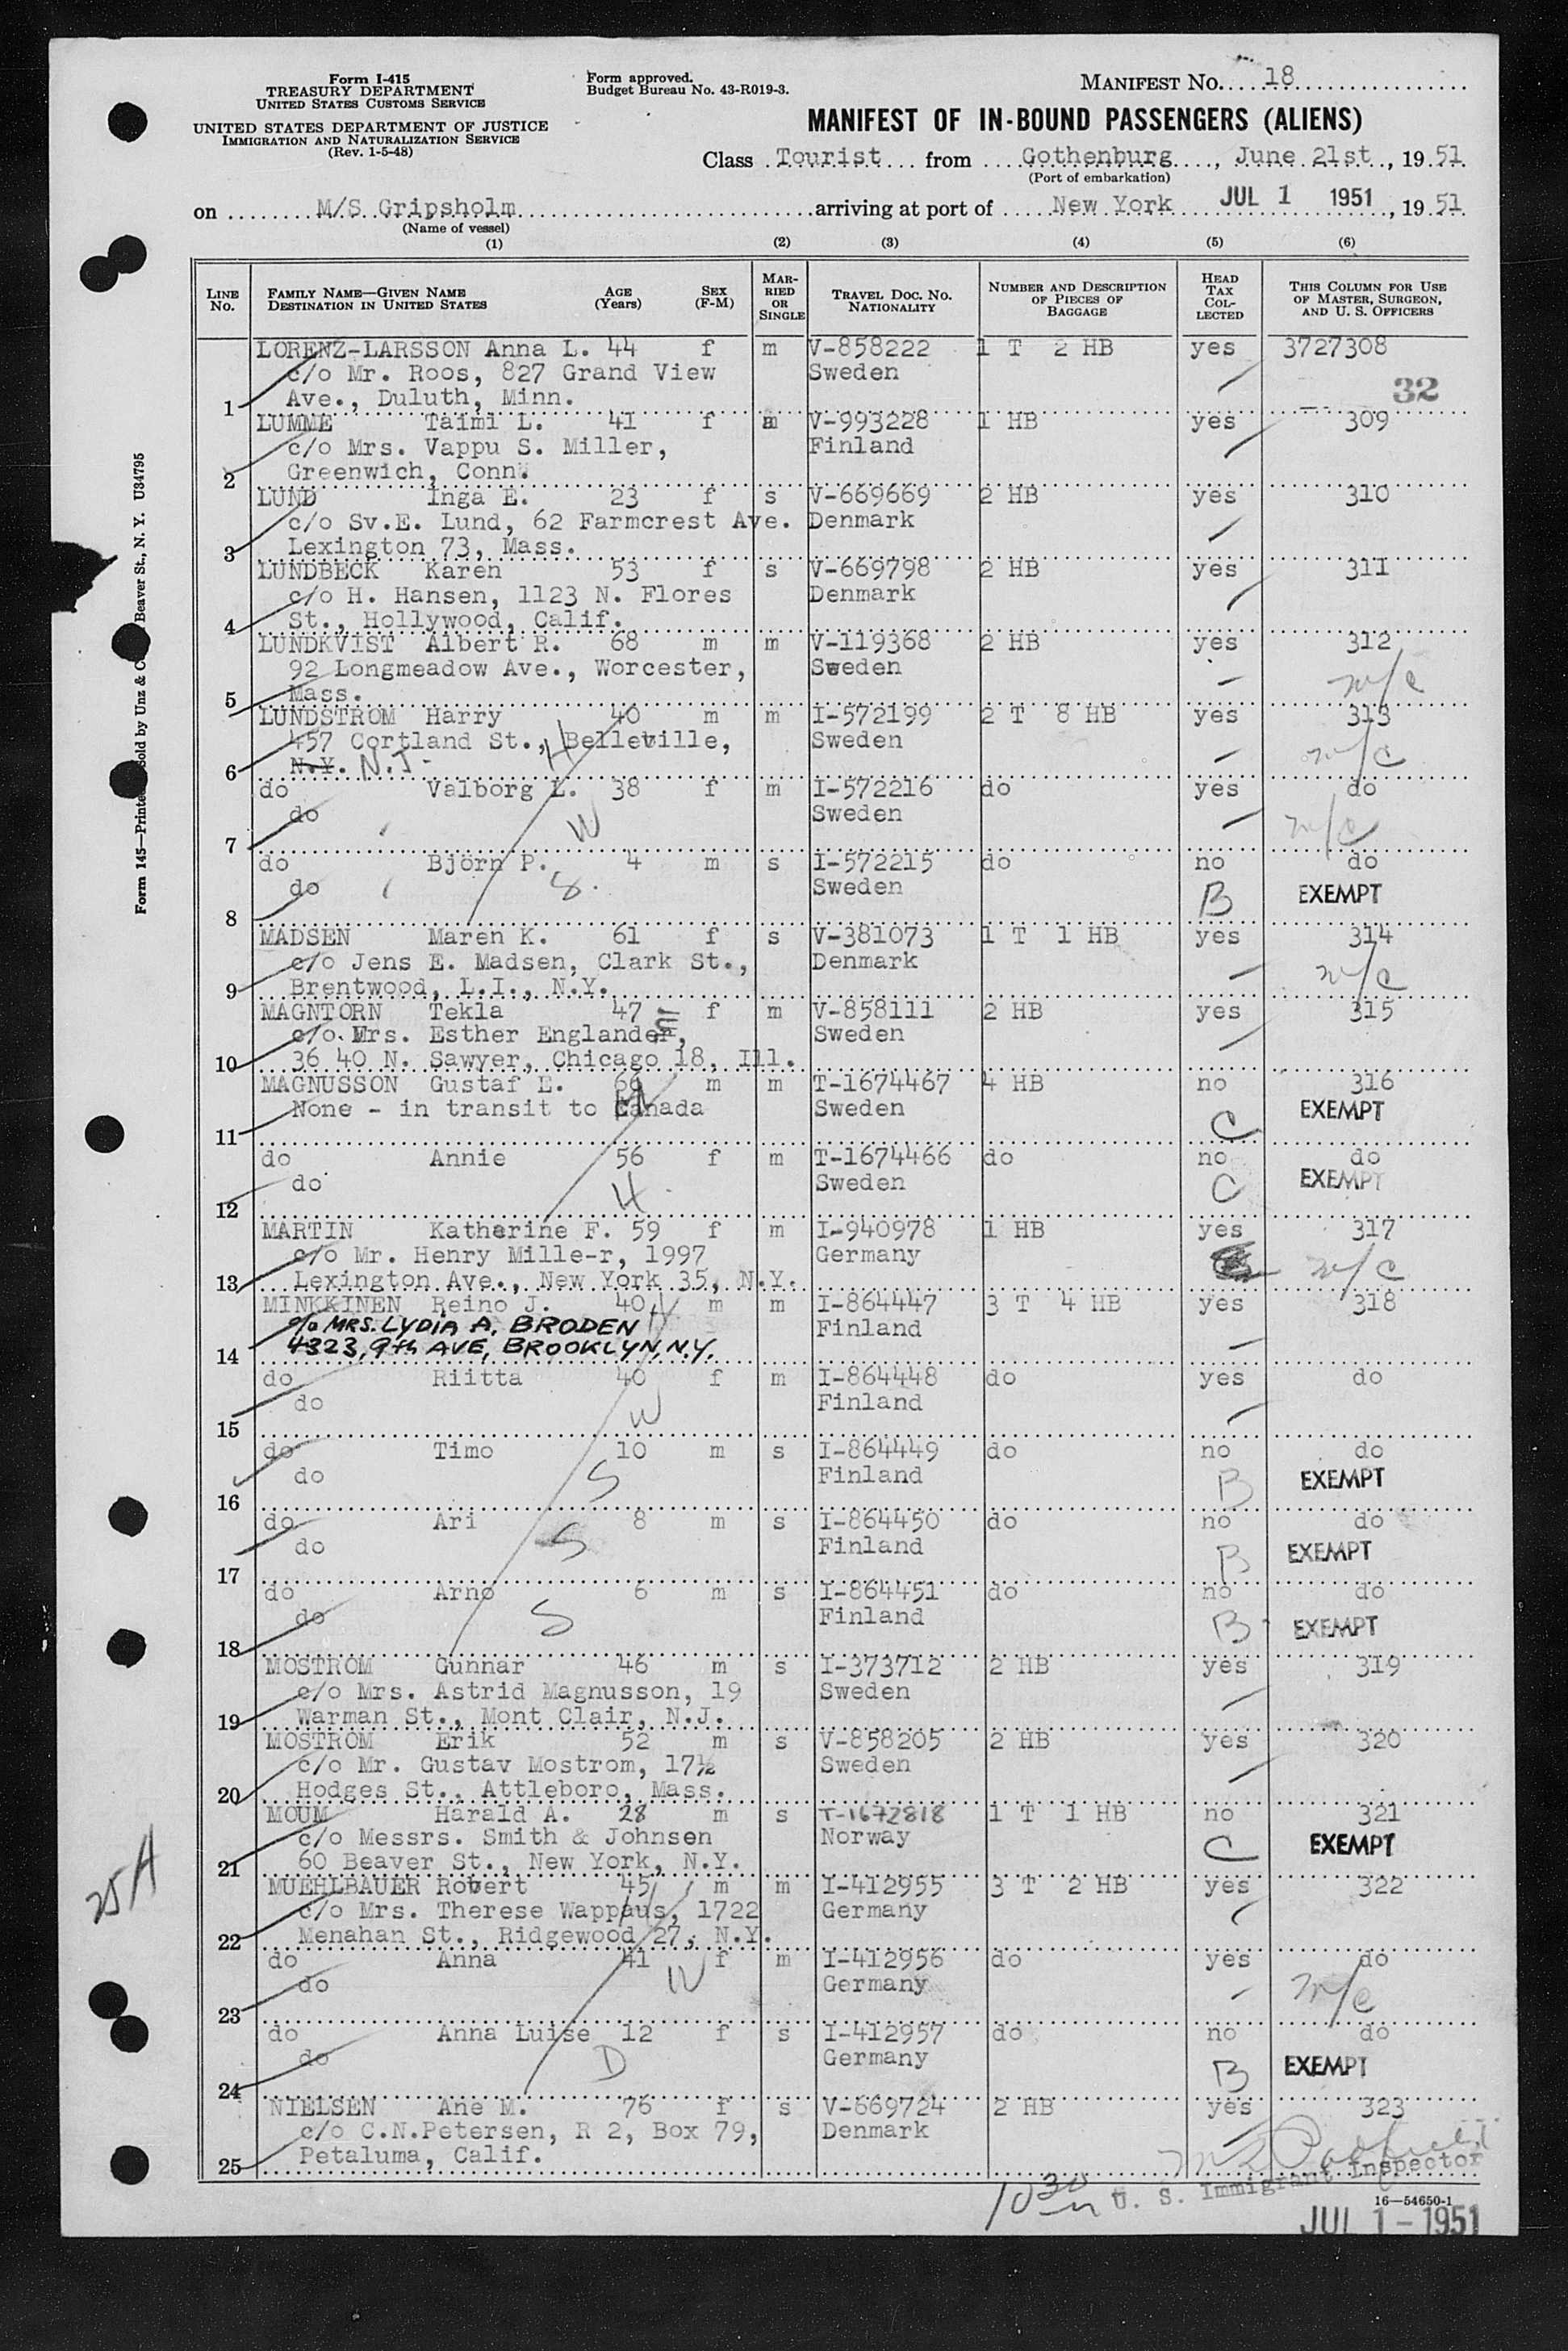 Form I-415
TREASURY DEPARTMENT
UNITED STATES CUSTOMS SERVICE
UNITED STATES DEPARTMENT OF JUSTICE
IMMIGRATION AND NATURALIZATION SERVICE
(Rev. 1-5-48)
Form approved.
Budget Bureau No. 43-R019-3.
MANIFEST NO. 18
MANIFEST OF IN-BOUND PASSENGERS (ALIENS)
Class Tourist from Gothenburg, June 21st, 19 51
(Port of embarkation)
on M/S Gripsholm arriving at port of New York JUL 1 1951, 19 51
(Name of vessel)
(1) (2) (3) (4) (5) (6)
LINE NO. FAMILY NAME—GIVEN NAME DESTINATION IN UNITED STATES AGE (Years) SEX (F-M) MARRIED OR SINGLE TRAVEL DOC. NO. NATIONALITY NUMBER AND DESCRIPTION OF PIECES OF BAGGAGE HEAD TAX COLLECTED THIS COLUMN FOR USE OF MASTER, SURGEON, AND U. S. OFFICERS
LORENZ-LARSSON Anna L. 44 f m V-858222 1 T 2 HB yes 3727308
c/o Mr. Roos, 827 Grand View Sweden
32
1 Ave., Duluth, Minn.
LUMME Taimi L. 41 f m V-993228 1 HB yes 309
c/o Mrs. Vappu S. Miller, Finland
2 Greenwich, Conn.
LUND Inga E. 23 f s V-669669 2 HB yes 310
c/o Sv.E. Lund, 62 Farmcrest Ave. Denmark
3 Lexington 73, Mass.
LUNDBECK Karen 53 f s V-669798 2 HB yes 311
c/o H. Hansen, 1123 N. Flores Denmark
4 St., Hollywood, Calif.
LUNDKVIST Albert R. 68 m m V-119368 2 HB yes 312
92 Longmeadow Ave., Worcester, Sweden m/c
5 Mass.
LUNDSTROM Harry 40 m m I-572199 2 T 8 HB yes 313
457 Cortland St., Belleville, H Sweden m/c
6 N.Y. N.J.
do Valborg L. 38 f m I-572216 do yes do
do W Sweden m/c
7
do Björn P. 4 m s I-572215 do no do
do S. Sweden B EXEMPT
8
MADSEN Maren K. 61 f s V-381073 1 T 1 HB yes 314
c/o Jens E. Madsen, Clark St., Denmark m/c
9 Brentwood, L.I., N.Y.
MAGNTORN Tekla 47 f m V-858111 2 HB yes 315
c/o Mrs. Esther Englander, Sweden
10 36 40 N. Sawyer, Chicago 18, Ill.
MAGNUSSON Gustaf E. 66 m m T-1674467 4 HB no 316
None - in transit to Canada Sweden C EXEMPT
11
do Annie 56 f m T-1674466 do no do
do Sweden C EXEMPT
12
MARTIN Katherine F. 59 f m I-940978 1 HB yes 317
c/o Mr. Henry Mille-r, 1997 Germany m/c
13 Lexington Ave., New York 35, N.Y.
MINKKINEN Reino J. 40 H m m I-864447 3 T 4 HB yes 318
c/o MRS. LYDIA A. BRODEN Finland
14 4323, 9th AVE, BROOKLYN, N.Y.
do Riitta 40 f m I-864448 do yes do
do W Finland
15
do Timo 10 m s I-864449 do no do
do S Finland B EXEMPT
16
do Ari 8 m s I-864450 do no do
do S Finland B EXEMPT
17
do Arno 6 m s I-864451 do no do
do S Finland B EXEMPT
18
MOSTROM Gunnar 46 m s I-373712 2 HB yes 319
c/o Mrs. Astrid Magnusson, 19 Sweden
19 Warman St., Mont Clair, N.J.
MOSTROM Erik 52 m s V-858205 2 HB yes 320
c/o Mr. Gustav Mostrom, 17½ Sweden
20 Hodges St., Attleboro, Mass.
MOUM Harald A. 28 m s T-1672818 1 T 1 HB no 321
c/o Messrs. Smith & Johnsen Norway C EXEMPT
21 60 Beaver St., New York, N.Y.
MUEHLBAUER Robert 45 m m I-412955 3 T 2 HB yes 322
c/o Mrs. Therese Wappaus, 1722 Germany
22 Menahan St., Ridgewood 27, N.Y.
do Anna 41 f m I-412956 do yes do
do W Germany m/c
23
do Anna Luise 12 f s I-412957 do no do
do D Germany B EXEMPT
24
NIELSEN Ane M. 76 f s V-669724 2 HB yes 323
c/o C.N.Petersen, R 2, Box 79, Denmark
25 Petaluma, Calif.
25A
U. S. Immigrant Inspector
16—54650-1
JUL 1 - 1951